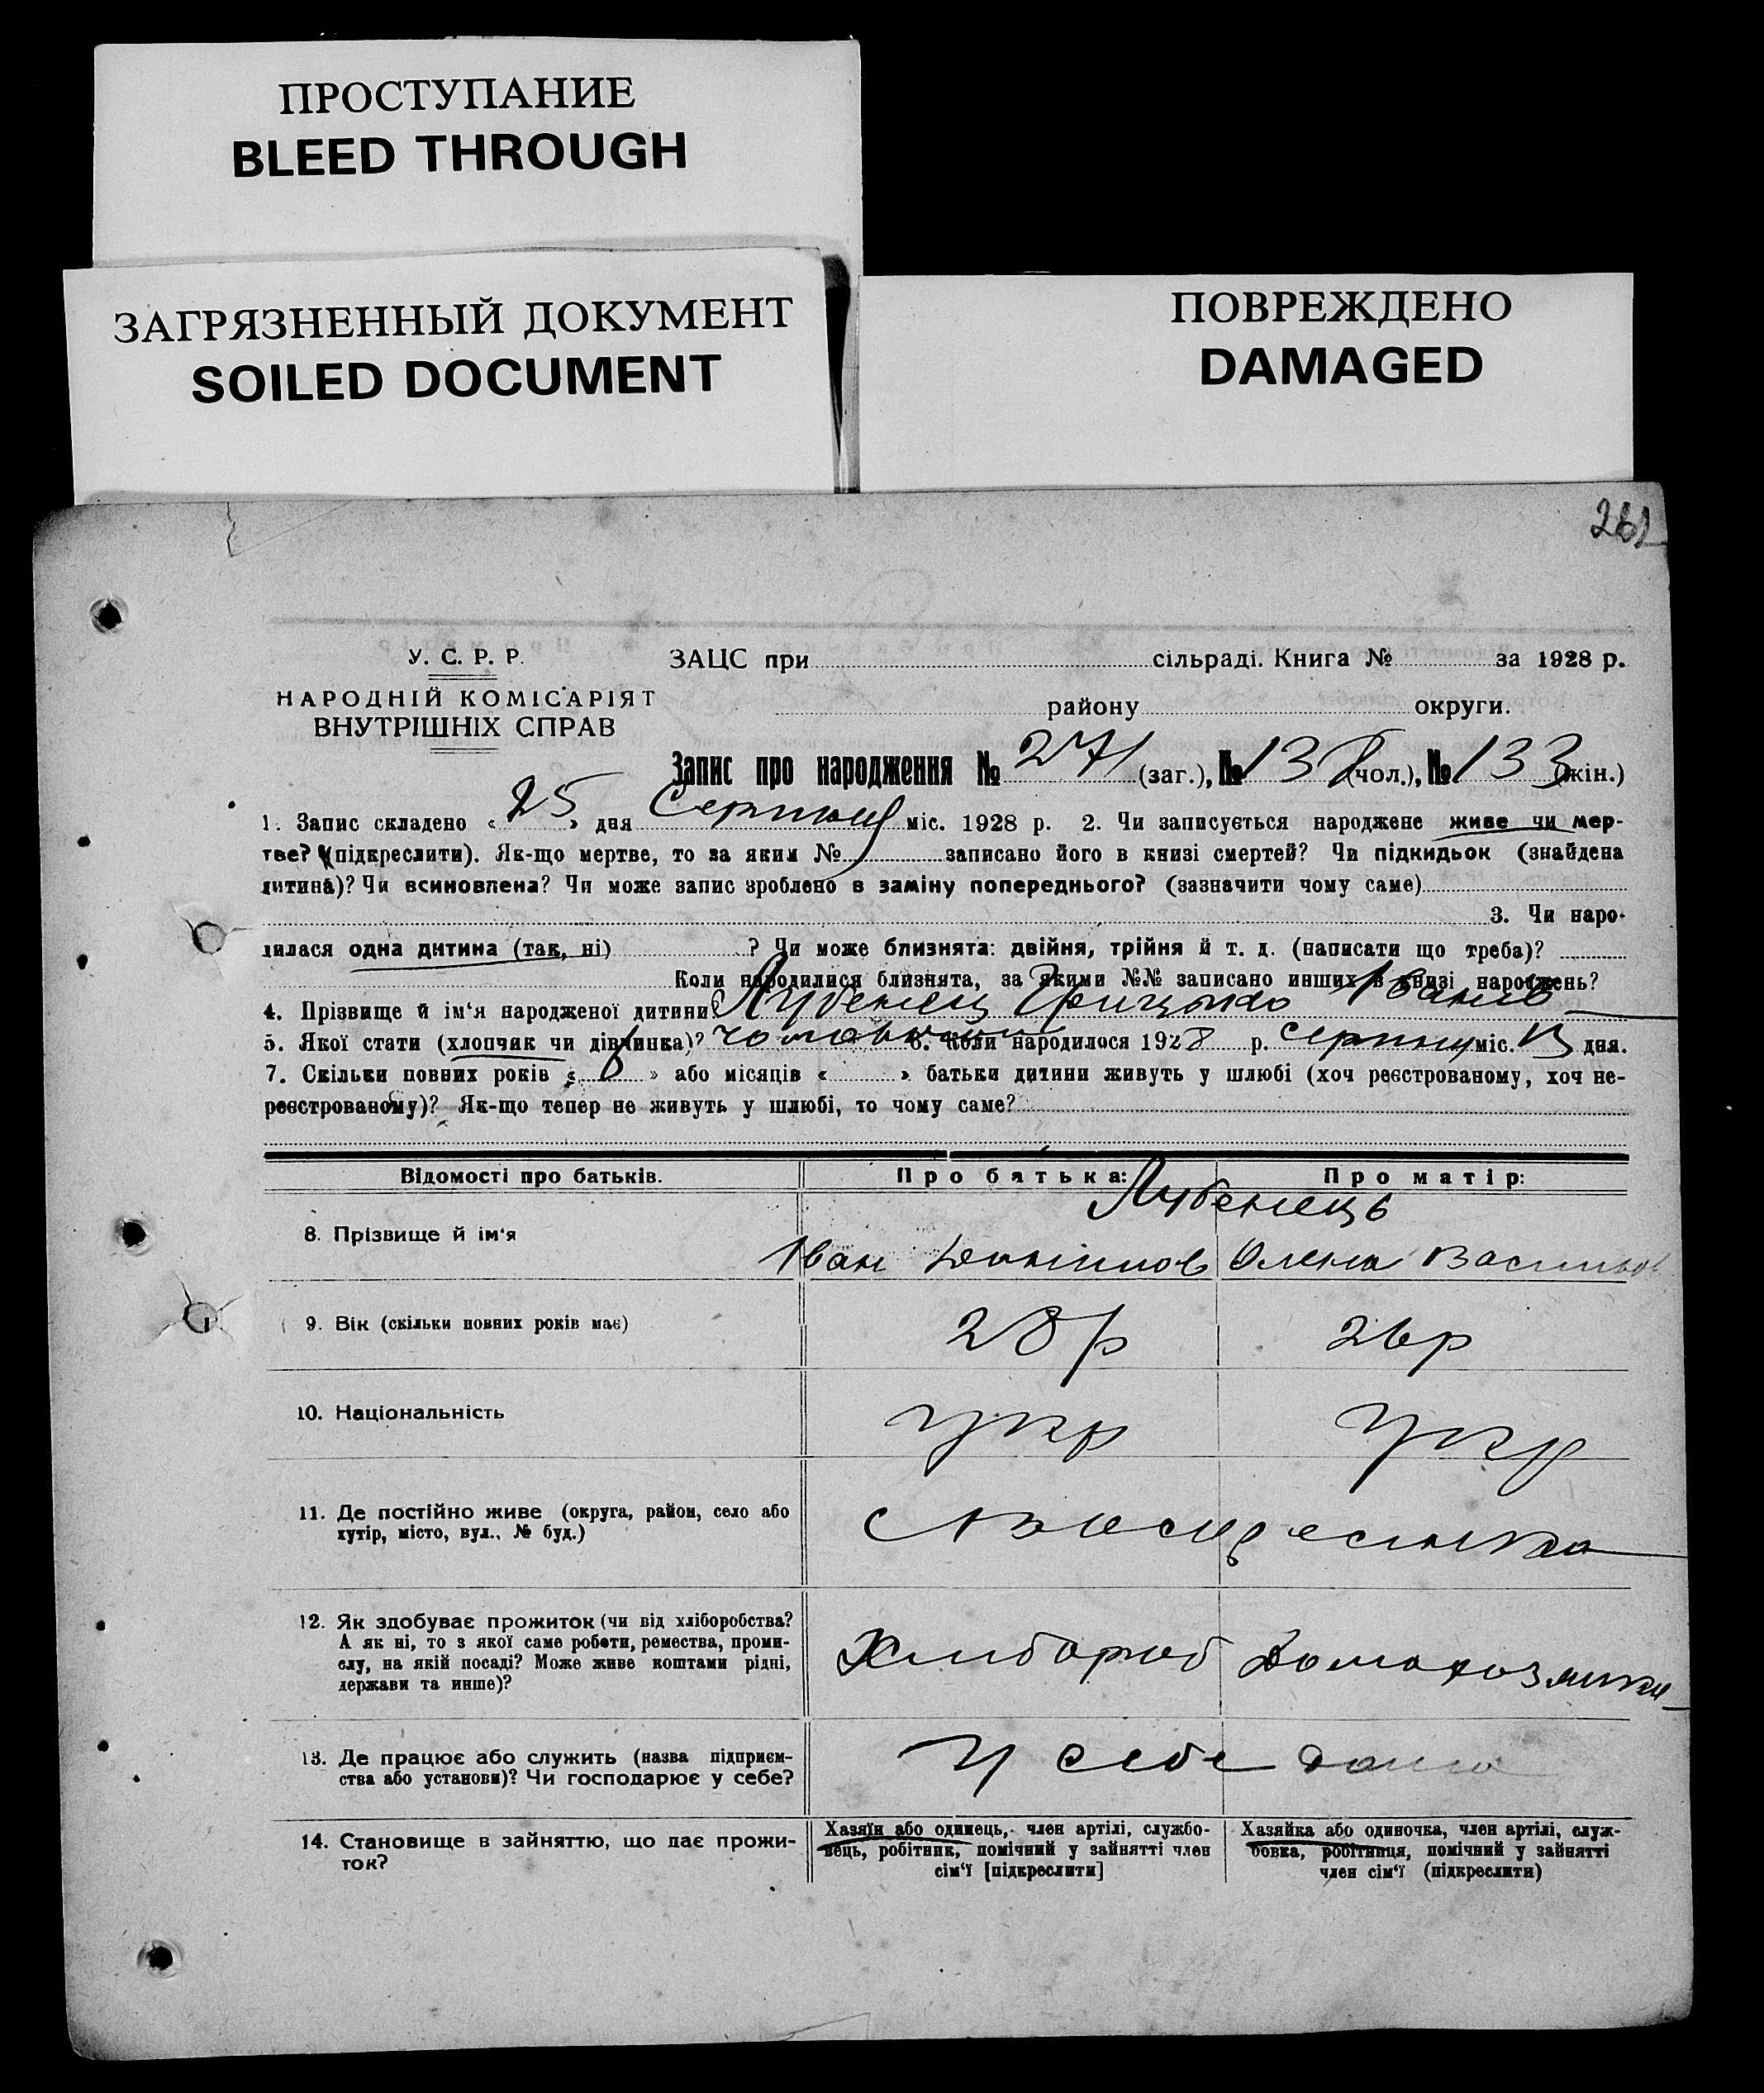 ПРОСТУПАНИЕ
BLEED THROUGH
ЗАГРЯЗНЕННЫЙ ДОКУМЕНТ
SOILED DOCUMENT
ПОВРЕЖДЕНО
DAMAGED
У. С. Р. Р.
НАРОДНІЙ КОМІСАРІЯТ
ВНУТРІШНІХ СПРАВ
ЗАЦС при сільраді. Книга № за 1928 р.
району округи.
Запис про народження № 271 (заг.), № 138 (чол.), № 133 (жін.)
1. Запис складено « 25 » дня Серпня міс. 1928 р. 2. Чи записується народжене живе чи мер-
тве? (підкреслити). Як-що мертве, то за яким № записано його в книзі смертей? Чи підкидьок (знайдена
дитина)? Чи всиновлена? Чи може запис зроблено в заміну попереднього? (зазначити чому саме)
3. Чи наро-
дилася одна дитина (так, ні) ? Чи може близнята: двійня, трійня й т. д. (написати що треба)?
Коли народилися близнята, за якими №№ записано инших в книзі народжень?
4. Прізвище й ім'я народженої дитини? Лубенец Грицько Іванів
5. Якої стати (хлопчик чи дівчинка)? 6. Коли народилося 1928 р. серпня міс. 13 дня.
7. Скільки повних років « 6 » або місяців « » батьки дитини живуть у шлюбі (хоч реєстрованому, хоч не-
реєстрованому)? Як-що тепер не живуть у шлюбі, то чому саме?
Відомості про батьків. Про батька: Про матір:
Лубенець
8. Прізвище й ім'я Іван Олена
9. Вік (скільки повних років має) 28 р 26 р
10. Національність укр укр
11. Де постійно живе (округа, район, село або
хутір, місто, вул., № буд.)
12. Як здобуває прожиток (чи від хліборобства?
А як ні, то з якої саме роботи, ремества, проми-
слу, на якій посаді? Може живе коштами рідні,
держави та инше)?
Хлибороб Домохозяйка
13. Де працює або служить (назва підприєм-
ства або установи)? Чи господарює у себе?
У себе дома
14. Становище в зайняттю, що дає прожи-
ток?
Хазяїн або одинець, член артілі, службо-
вець, робітник, помічний у зайнятті член
сім'ї [підкреслити]
Хазяйка або одиночка, член артілі, служ-
бовка, робітниця, помічний у зайнятті
член сім'ї (підкреслити)